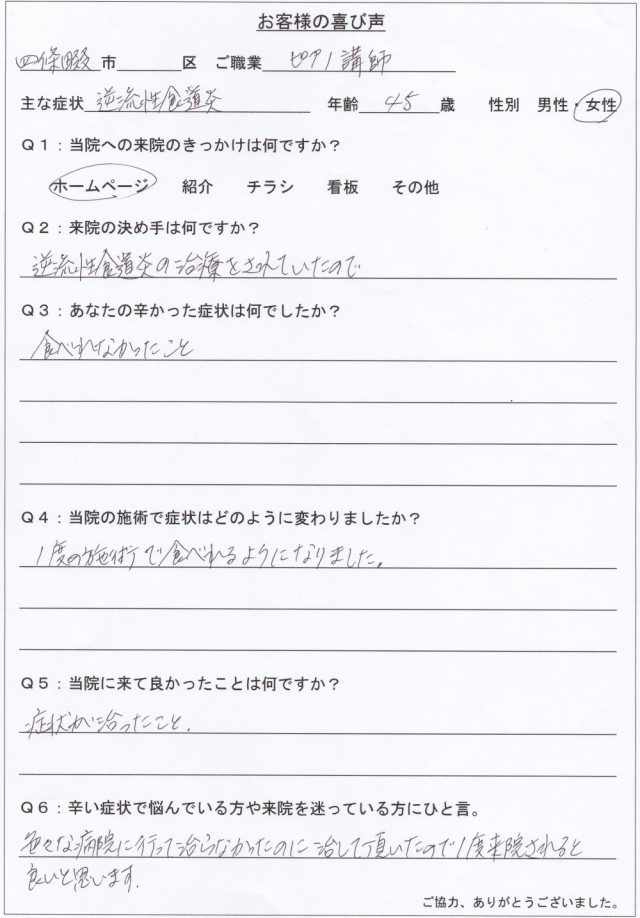 お客様の喜び声
四條畷市 区 ご職業 ピアノ講師
主な症状 逆流性食道炎 年齢 45 歳 性別 男性・女性
Q1:当院への来院のきっかけは何ですか?
ホームページ 紹介 チラシ 看板 その他
Q2:来院の決め手は何ですか?
逆流性食道炎の治療をされていたので
Q3:あなたの辛かった症状は何でしたか?
食べれなかったこと
Q4:当院の施術で症状はどのように変わりましたか?
1度の施術で食べれるようになりました。
Q5:当院に来て良かったことは何ですか?
症状が治ったこと.
Q6:辛い症状で悩んでいる方や来院を迷っている方にひと言。
色々な病院に行って治らなかったのに治して頂いたので1度来院されると
良いと思います.
ご協力、ありがとうございました。